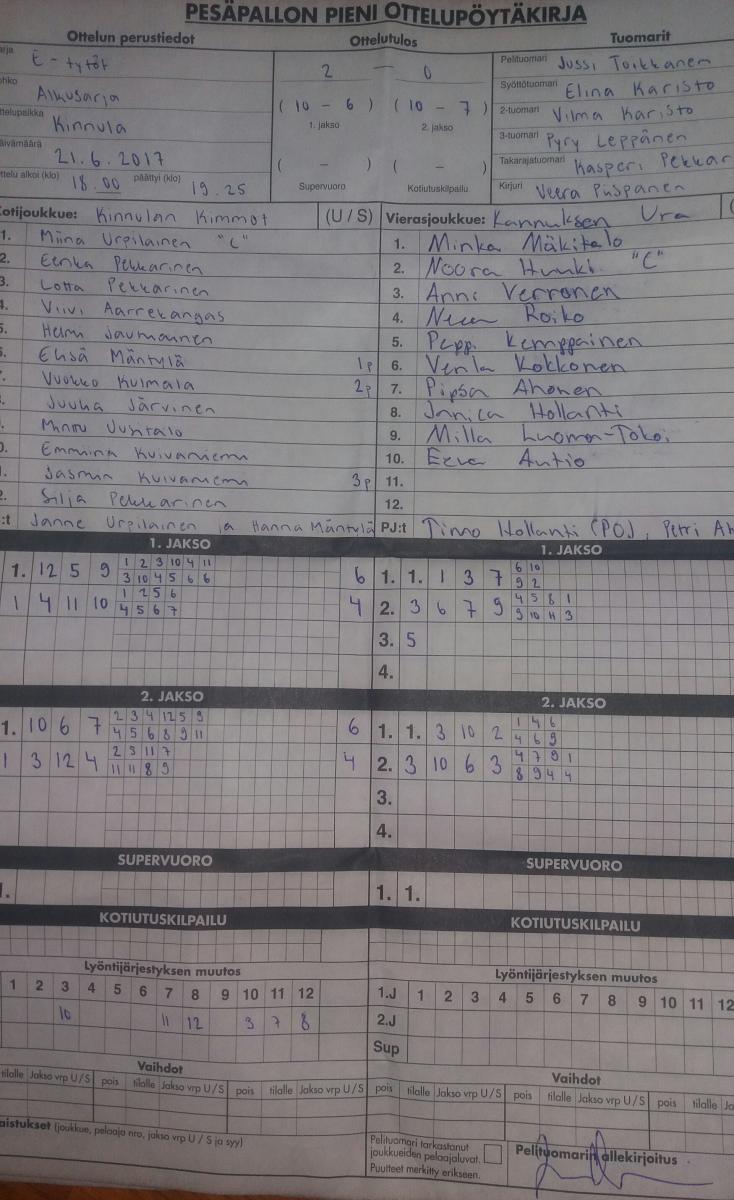 PESÄPALLON PIENI OTTELUPÖYTÄKIRJA
Ottelun perustiedot Ottelutulos Tuomarit
E-tytöt
Alkusarja
Kinnula
21.6.2017
18.00 päättyi (klo) 19.25
2 — 0
( 10 - 6 ) ( 10 - 7 )
1. jakso 2. jakso
( - ) ( - )
Supervuoro Kotiutuskilpailu
Pelituomari Jussi Toikkanen
Syöttötuomari Elina Karisto
2-tuomari Vilma Karisto
3-tuomari Pyry Leppänen
Takarajatuomari Kasperi Pekkar
Kirjuri Veera Puspanen
otijoukkue: Kinnulan Kimmot (U / S)
Miina Urpilainen "C"
Eerika Pekkarinen
Lotta Pekkarinen
Viivi Aarrekangas
Helmi Jaumainen
Elisa Mäntylä 1p
Vuokko Kulmala 2p
Juulia Järvinen
Minttu Uusitalo
Emmiina Kuivaniemi
Jasmin Kuivaniemi 3p
Silja Pekkarinen
:t Janne Urpilainen ja Hanna Mäntylä
Vierasjoukkue: Kannuksen Ura
1. Minka Mäkitalo
2. Noora Hunki "C"
3. Anni Verronen
4. Roiko
5. Kemppainen
6. Venla Kokkonen
7. Pipsa Ahonen
8. Janica Hollanti
9. Milla Luoma-Toko
10. Eeva Autio
11.
12.
PJ:t Timo Hollanti (PJ), Petri Ah
1. JAKSO
1. 12 5 9
1 2 3 10 4 11
3 10 4 5 6 6
6
1 4 11 10
1 2 5 6
4 5 6 7
4
1. JAKSO
1. 1. 1 3 7
6 10
9 2
2. 3 6 7 9
4 5 8 1
9 10 11 3
3. 5
4.
2. JAKSO
1. 10 6 7
2 3 4 12 5 9
4 5 6 8 9 11
6
1 3 12 4
2 3 11 7
11 11 8 9
4
2. JAKSO
1. 1. 3 10 2
1 4 6
4 6 9
2. 3 10 6 3
4 7 9 1
8 9 4 4
3.
4.
SUPERVUORO
SUPERVUORO
1. 1.
KOTIUTUSKILPAILU
KOTIUTUSKILPAILU
Lyöntijärjestyksen muutos
1 2 3 4 5 6 7 8 9 10 11 12
10 11 12 3 7 8
Lyöntijärjestyksen muutos
1.J 1 2 3 4 5 6 7 8 9 10 11 12
2.J
Sup
Vaihdot
tilalle Jakso vrp U / S pois tilalle Jakso vrp U / S pois tilalle Jakso vrp U / S
Vaihdot
pois tilalle Jakso vrp U / S pois tilalle Jakso vrp U / S pois tilalle
aistukset (joukkue, pelaaja nro, jakso vrp U / S ja syy)
Pelituomari tarkastanut
joukkueiden pelaajaluvat.
Puutteet merkitty erikseen.
Pelituomarin allekirjoitus